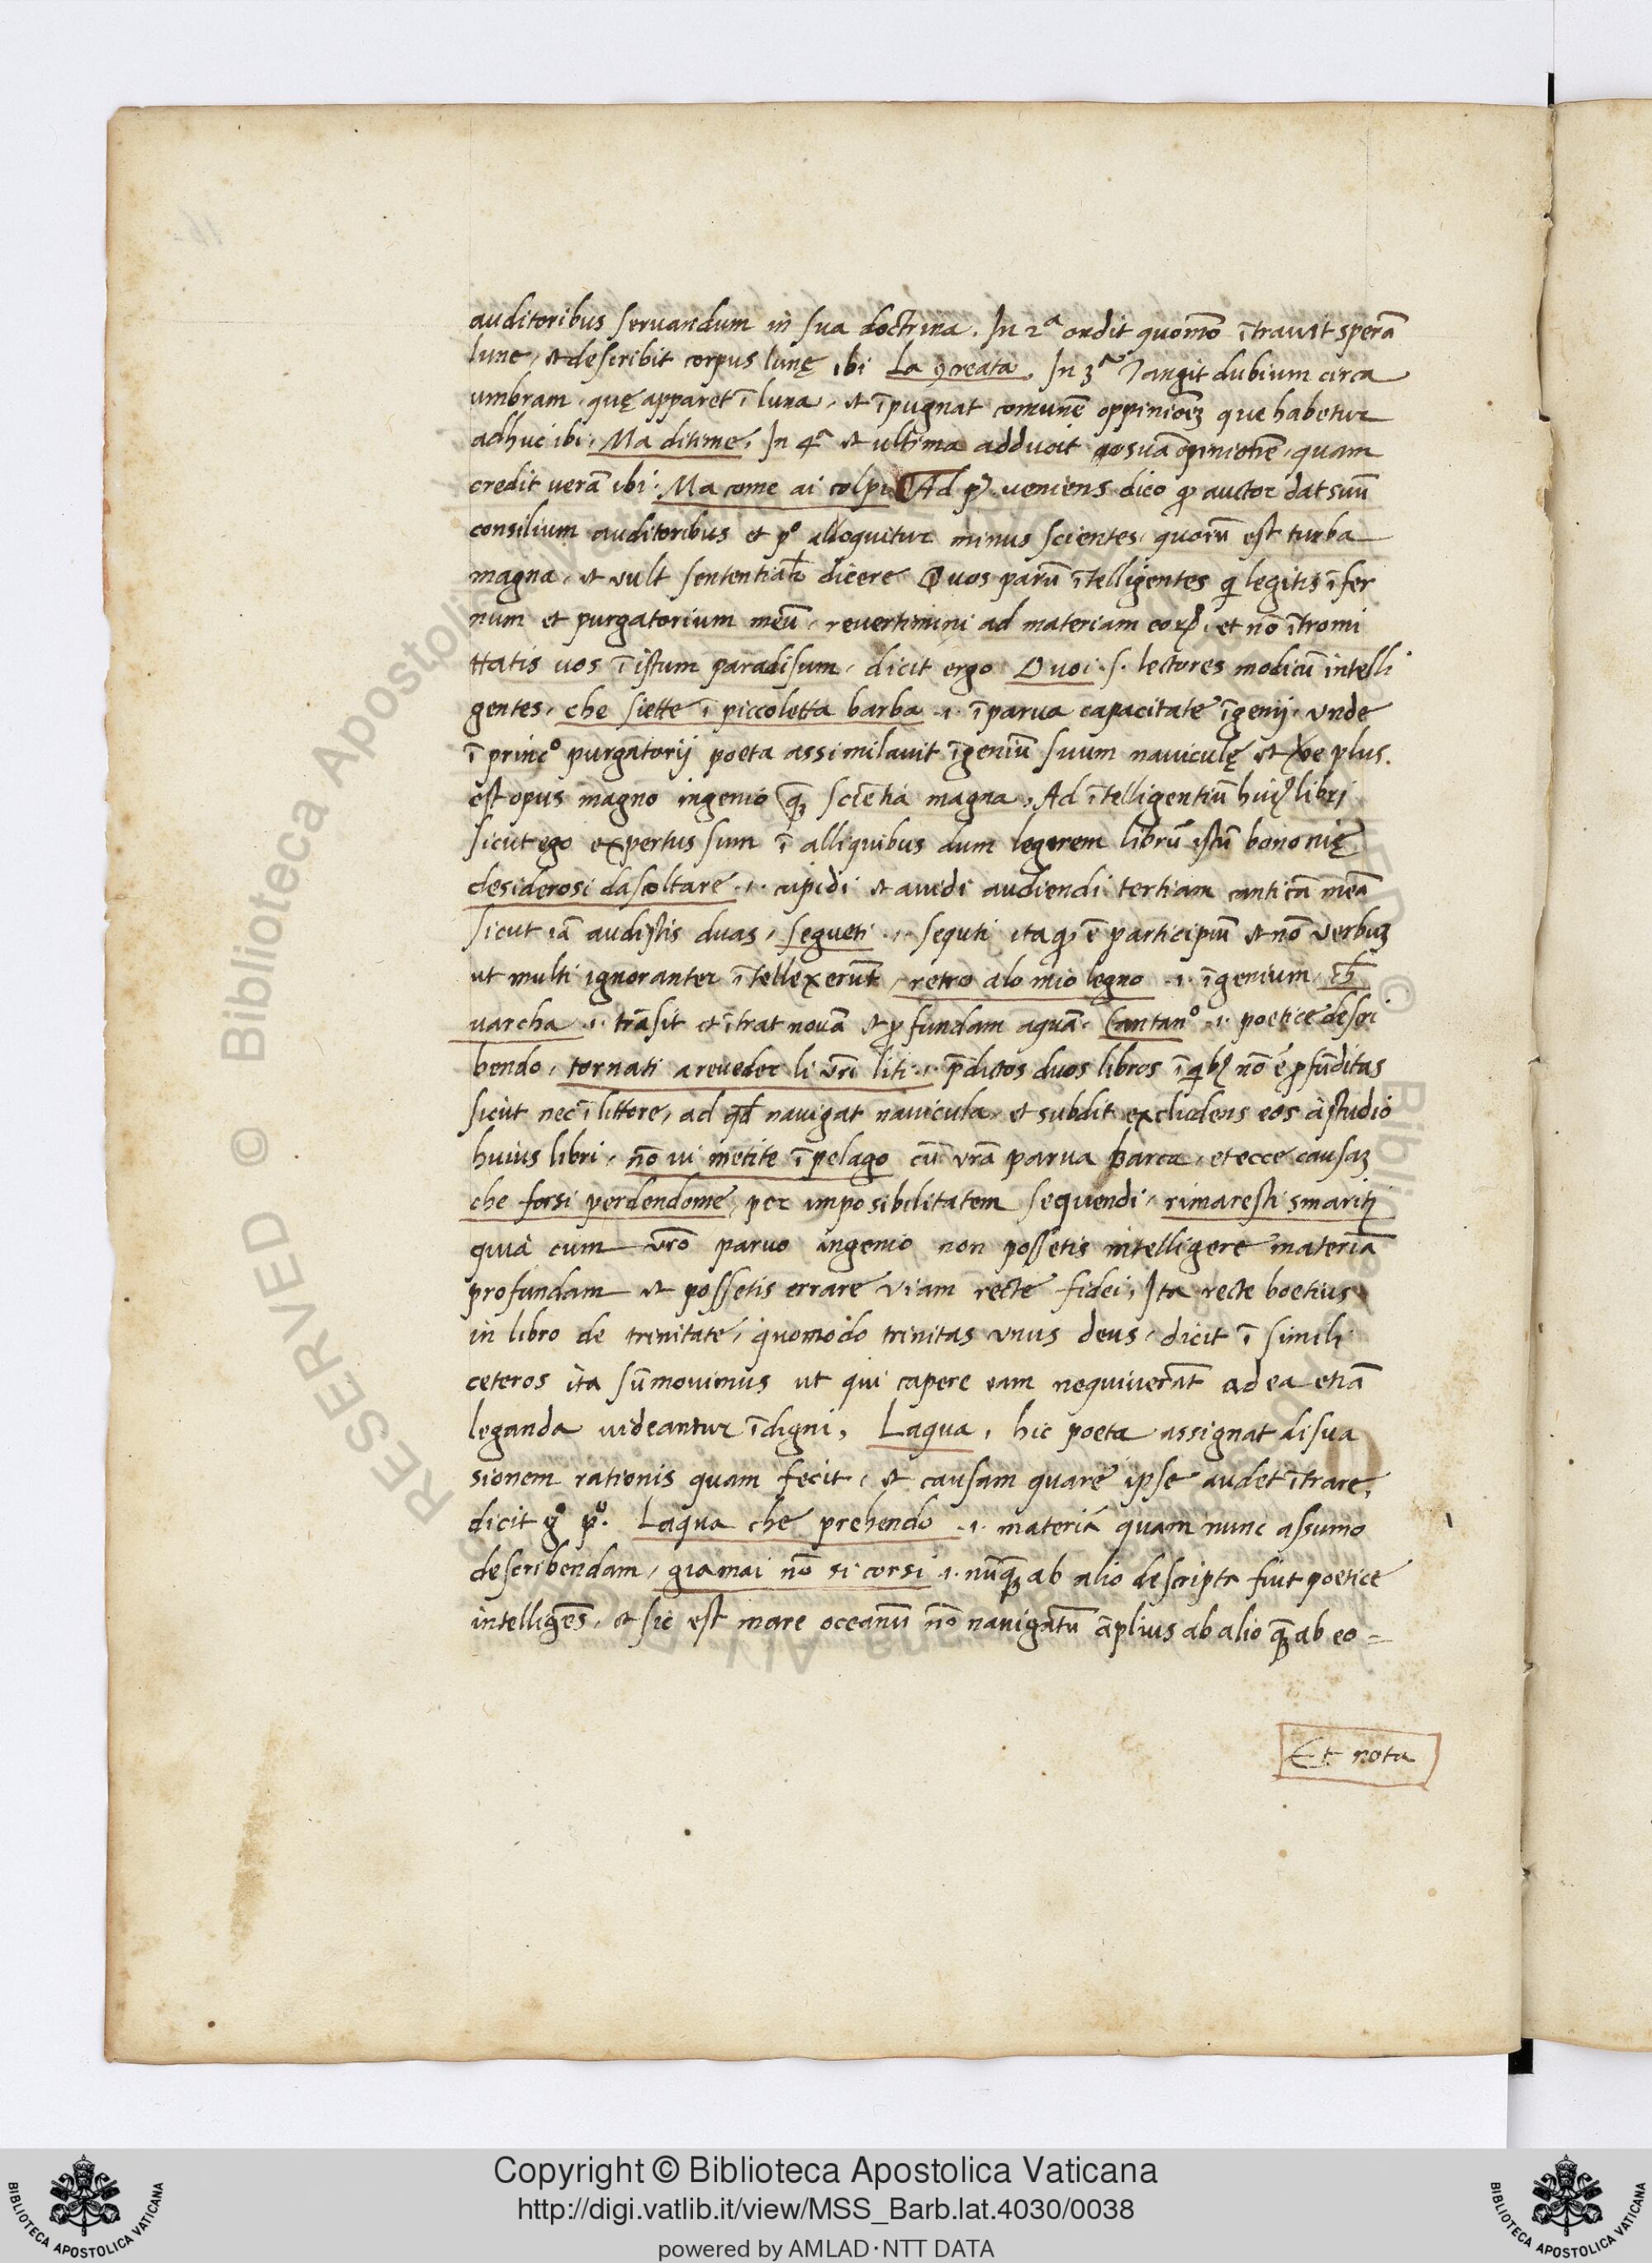 auditoribus seruandum in sua doctrina. In 2ª ondit quomō ītrauit sperā
lune, et describit corpus lunę ibi La ꝯcreata. In 3ª Tangit dubium circa
umbram, quę apparet ī luna, et īpugnat comunē oppinioēꝫ que habetur
adhuc ibi, Ma ditime, In 4ª et ultima adducit suā opinionē, quam
credit uerā ibi. Ma come ai colpi Ad pᵐ. ueniens dico ꝙ auctor dat suū
consilium auditoribus et pº alloquitur minus scientes, quorū est turba
magna, et vult sententialr̄ dicere O uos parū ītelligentes qi legitis īfer
num et purgatorium meū, reuertimini ad materiam eoꝝ, et nō ītromi
ttatis uos ī istum paradisum, dicit ergo O uoi .s. lectores modicū intelli
gentes, che siette ī piccoletta barba .i. ī parua capacitate īgenij, vnde
ī princº purgatorij poeta assimilauit īgeniū suum nauiculę et plus.
est opus magno ingenio qꝫ scīentia magna, Ad ītelligentiū huiꝰ libri
sicut ego expertus sum ī alliquibus dum legerem librū istū bononię
desiderosi dascoltare .i. cupidi et auidi audiendi tertiam canticā meā
sicut iā audistis duas, segueti .i. sequti itaqꝫ ē participiū et nō verbuꝫ
ut multi ignoranter ītellexerūt, retro alo mio legno .i. īgenium, ch̄
uarcha .i. trāsit et ītrat nouā et ꝓfundam aquā. Cantanº .i. poetice descri
bendo, tornati a reueder li vr̄i liti .i. p̄dictos duos libros ī qibꝰ nō ē ꝓfūditas
sicut nec ī littore, ad qd̄ nauigat nauicula, et subdit excludens eos à studio
huius libri, nō ui metite ī pelago cū vr̄a parua barca, et ecce causaꝫ
che forsi perdendome, per imposibilitatem sequendi, rimaresti smariti
quià cum vr̄o paruo ingenio non possetis intelligere materiā
profundam et possetis errare viam recte fidei, Ita recte boetius
in libro de trinitate, quomodo trinitas vnus deus, dicit ī simili
ceteros ita sūmouimus ut qui capere eam nequiuerāt ad ea etiā
leganda uideantur īdigni, Laqua, hic poeta assignat disua
sionem rationis quam fecit, et causam quare ipse audet ītrare,
dicit gº pº. Laqua che prehendo .i. materiā quam nunc assumo
describendam, giamai nō si corsi .i. nūqꝫ ab alio descripta fuit poetice
intelligēs, et sic est mare oceanū nō nauigatū āplius ab alio qꝫ ab eo =
Et nota
Copyright © Biblioteca Apostolica Vaticana
http://digi.vatlib.it/view/MSS_Barb.lat.4030/0038
powered by AMLAD·NTT DATA
BIBLIOTECA APOSTOLICA VATICANA
BIBLIOTECA APOSTOLICA VATICANA